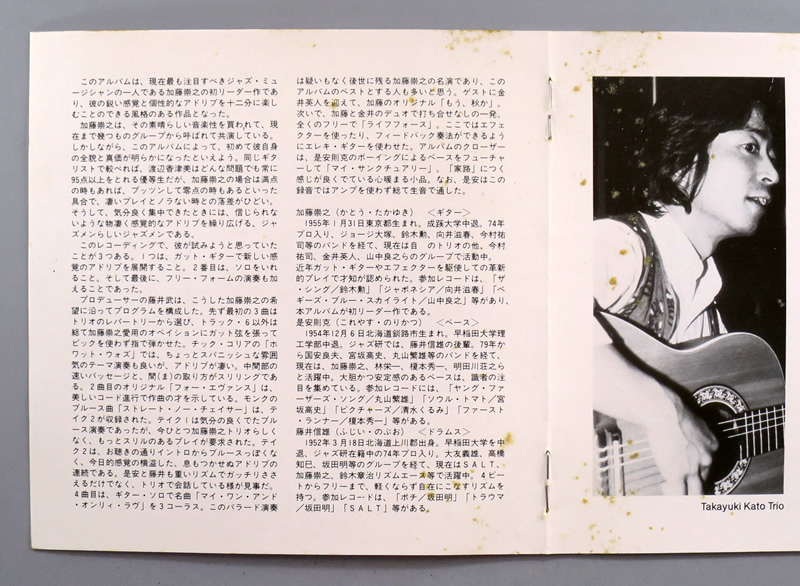 このアルバムは、現在最も注目すべきジャズ・ミュ
ージシャンの一人である加藤崇之の初リーダー作であ
り、彼の鋭い感覚と個性的なアドリブを十二分に楽し
むことのできる風格のある作品となった。
加藤崇之は、その素晴らしい音楽性を買われて、現
在まで幾つものグループから呼ばれて共演している。
しかしながら、このアルバムによって、初めて彼自身
の全貌と真価が明らかになったといえよう。同じギタ
リストで較べれば、渡辺香津美はどんな問題でも常に
95点以上をとれる優等生だが、加藤崇之の場合は満点
の時もあれば、プッツンして零点の時もあるといった
具合で、凄いプレイとノラない時との落差がひどい。
そうして、気分良く集中できたときには、信じられな
いような物凄く感覚的なアドリブを繰り広げる、ジャ
ズメンらしいジャズメンである。
このレコーディングで、彼が試みようと思っていた
ことが3つある。1つは、ガット・ギターで新しい感
覚のアドリブを展開すること。2番目は、ソロをいれ
ること。そして最後に、フリー・フォームの演奏も加
えることであった。
プロデューサーの藤井武は、こうした加藤崇之の希
望に沿ってプログラムを構成した。先ず最初の3曲は
トリオのレパートリーから選び、トラック・6以外は
総て加藤崇之愛用のオベイションにガット弦を張って
ピックを使わず指で弾かせた。チック・コリアの「ホ
ワット・ウォズ」では、ちょっとスパニッシュな雰囲
気のテーマ演奏も良いが、アドリブが凄い。中間部の
速いパッセージと、間(ま)の取り方がスリリングであ
る。2曲目のオリジナル「フォー・エヴァンス」は、
美しいコード進行で作曲の才を示している。モンクの
ブルース曲「ストレート・ノー・チェイサー」は、テ
イク2が収録された。テイク1は気分の良くでたブル
ース演奏であったが、今ひとつ加藤崇之トリオらしく
なく、もっとスリルのあるプレイが要求された。テイ
ク2は、お聴きの通りイントロからブルースっぽくな
く、今日的感覚の横溢した、息もつかせぬアドリブの
連続である。是安と藤井も重いリズムでガッチリささ
えるだけでなく、トリオで会話している様が見事だ。
4曲目は、ギター・ソロで名曲「マイ・ワン・アンド
・オンリィ・ラヴ」を3コーラス。このバラード演奏
は疑いもなく後世に残る加藤崇之の名演であり、この
アルバムのベストとする人も多いと思う。ゲストに金
井英人を迎えて、加藤のオリジナル「もう、秋か」。
次いで、加藤と金井のデュオで打ち合せなしの一発、
全くのフリーで「ライフフォース」。ここではエフェ
クターを使ったり、フィードバック奏法ができるよう
にエレキ・ギターを使わせた。アルバムのクローザー
は、是安則克のボーイングによるベースをフューチャ
ーして「マイ・サンクチュアリー」。「家路」につく
感じが良くでている心暖まる小品。なお、是安はこの
録音ではアンプを使わず総て生音で通した。
加藤崇之(かとう・たかゆき) <ギター>
1955年1月31日東京都生まれ。成蹊大学中退。74年
プロ入り、ジョージ大塚、鈴木勲、向井滋春、今村祐
司等のバンドを経て、現在は自 のトリオの他、今村
祐司、金井英人、山中良之らのグループで活動中。
近年ガット・ギターやエフェクターを駆使しての革新
的プレイで才知が認められた。参加レコードは、「ザ
・シング／鈴木勲」「ジャポネシア／向井滋春」「ベ
ギーズ・ブルー・スカイライト／山中良之」等があり、
本アルバムが初リーダー作である。
是安則克(これやす・のりかつ) <ベース>
1954年12月6日北海道釧路市生まれ。早稲田大学理
工学部中退。ジャズ研では、藤井信雄の後輩。79年か
ら国安良夫、宮坂高史、丸山繁雄等のバンドを経て、
現在は、加藤崇之、林栄一、榎本秀一、明田川荘之ら
と活躍中。大胆かつ安定感のあるベースは、識者の注
目を集めている。参加レコードには、「ヤング・ファ
ーザーズ・ソング／丸山繁雄」「ソウル・トマト／宮
坂高史」「ピクチャーズ／清水くるみ」「ファースト
・ランナー／榎本秀一」等がある。
藤井信雄(ふじい・のぶお) <ドラムス>
1952年3月18日北海道上川郡出身。早稲田大学を中
退、ジャズ研在籍中の74年プロ入り。大友義雄、高橋
知己、坂田明等のグループを経て、現在はＳＡＬＴ、
加藤崇之、鈴木章治リズムエース等で活躍中。4ビー
トからフリーまで、軽くならず自在にこなすリズムを
持つ。参加レコードは、「ポチ／坂田明」「トラウマ
／坂田明」「ＳＡＬＴ」等がある。
Takayuki Kato Trio